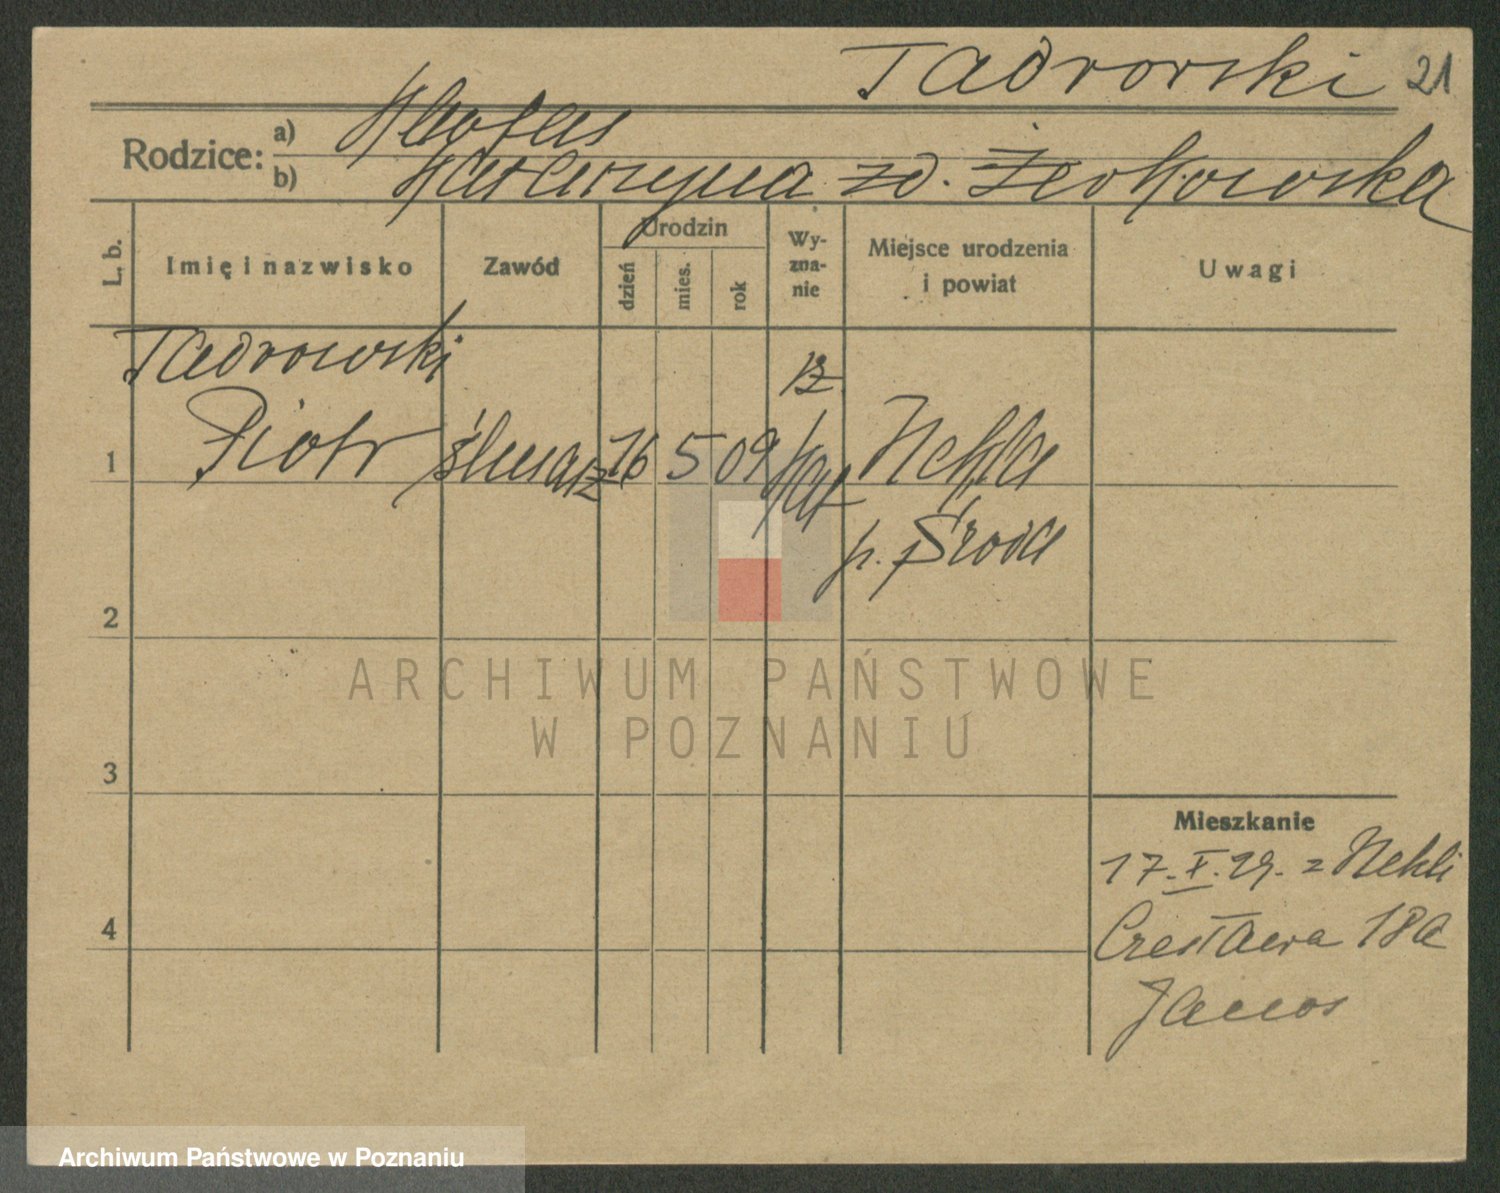 Tadrowski 21
Rodzice: a)
b) Katarzyna zd. Żerkowska
L. b. Imię i nazwisko Zawód Urodzin dzień mies. rok Wy-zna-nie Miejsce urodzenia i powiat Uwagi
Tadrowski
1 Piotr ślusarz 16 5 09 kat Nekla
p. Środa
2
3
4
Mieszkanie
17.X.29. z Nekli
18a
ARCHIWUM PAŃSTWOWE
W POZNANIU
Archiwum Państwowe w Poznaniu